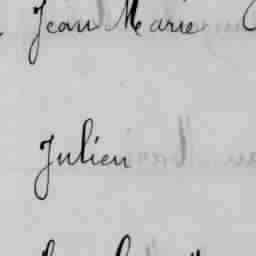 Jean Marie
Julien